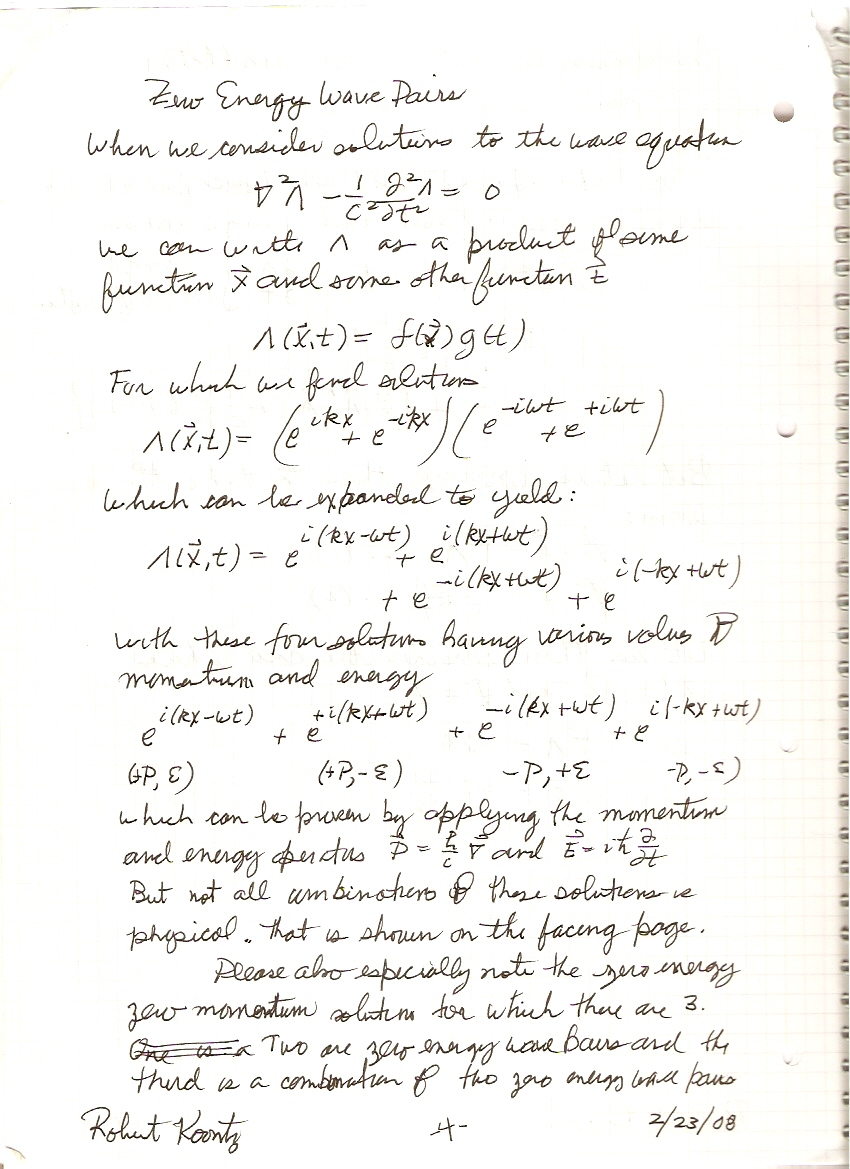 Zero Energy Wave Pairs
When we consider solutions to the wave equation
∇²Λ − 1/C² ∂²Λ/∂t² = 0
we can write Λ as a product of some
function x⃗ and some other function t
Λ(x⃗,t) = f(x⃗)g(t)
For which we find solutions
Λ(x⃗,t) = (e^{ikx} + e^{-ikx})(e^{-iωt} + e^{+iωt})
Which can be expanded to yield:
Λ(x⃗,t) = e^{i(kx-ωt)} + e^{i(kx+ωt)}
+ e^{-i(kx+ωt)} + e^{i(-kx+ωt)}
with these four solutions having various values of
momentum and energy
e^{i(kx-ωt)} + e^{+i(kx+ωt)} + e^{-i(kx+ωt)} + e^{i(-kx+ωt)}
(+P, E) (+P,-E) -P,+E -P,-E)
which can be proven by applying the momentum
and energy operators P⃗ = ħ/i ∇⃗ and E⃗ = iħ ∂/∂t
But not all combinations of these solutions is
physical. That is shown on the facing page.
Please also especially note the zero energy
zero momentum solutions for which there are 3.
One is a Two are zero energy wave Pairs and the
third is a combination of two zero energy wave pairs
Robert Koontz -4- 2/23/08